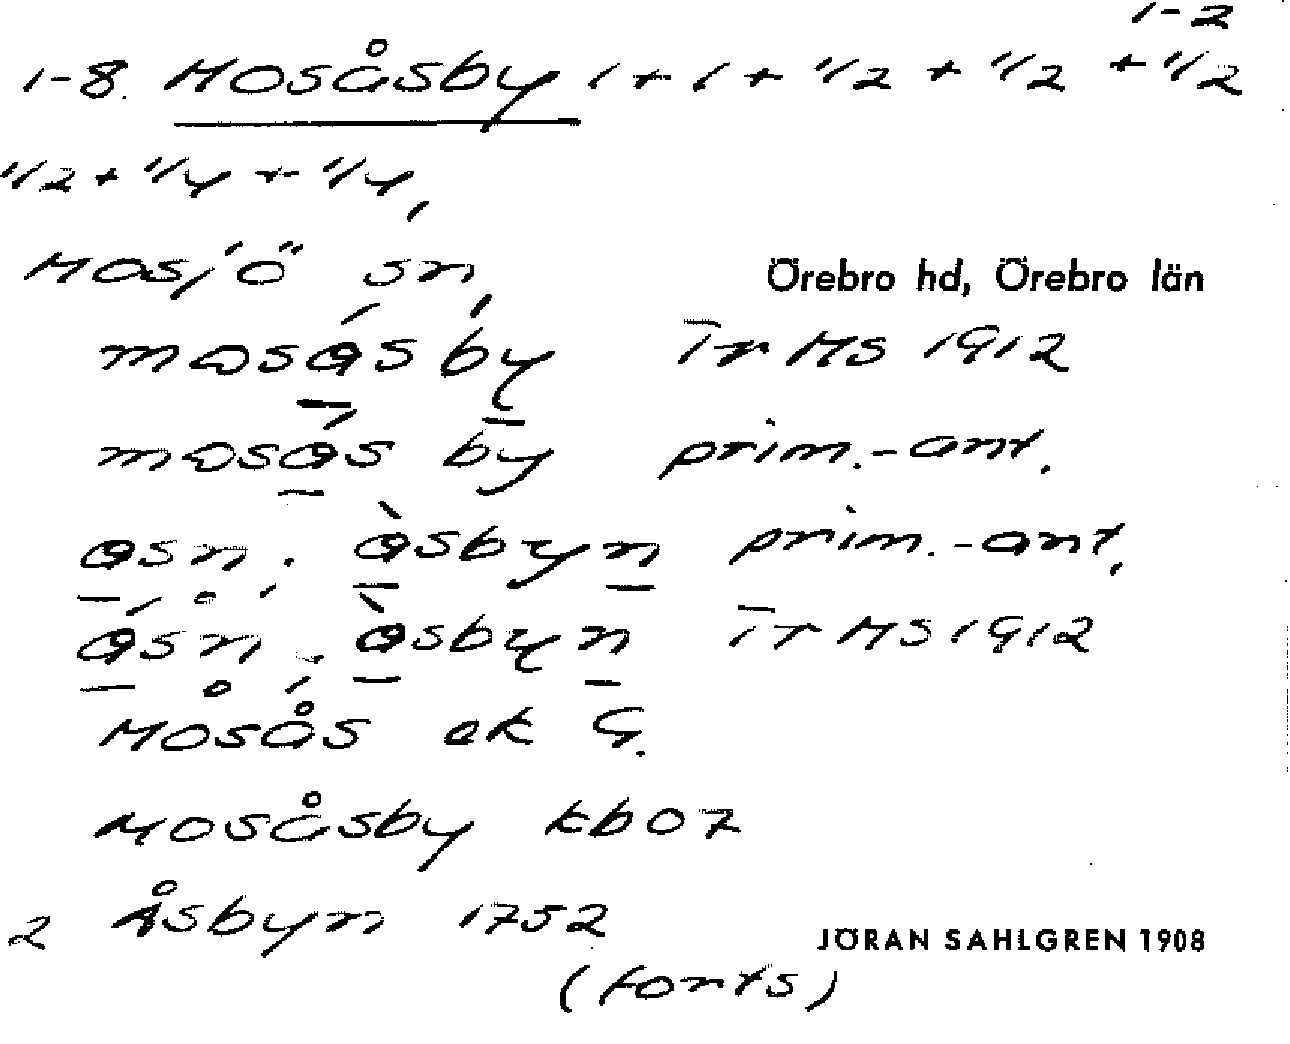 1-2
1-8. Mosåsby 1 + 1 + 1/2 + 1/2 + 1/2
1/2 + 1/4 + 1/4,
Mosjö sn, Örebro hd, Örebro län
mosás by Tr MS 1912
mosás by prim.-ant.
asn, àsbyn prim.-ant.
ásn, àsbyn Tr MS 1912
Mosås ek G.
Mosåsby kb 07
2 Åsbyn 1752
JÖRAN SAHLGREN 1908
(forts)